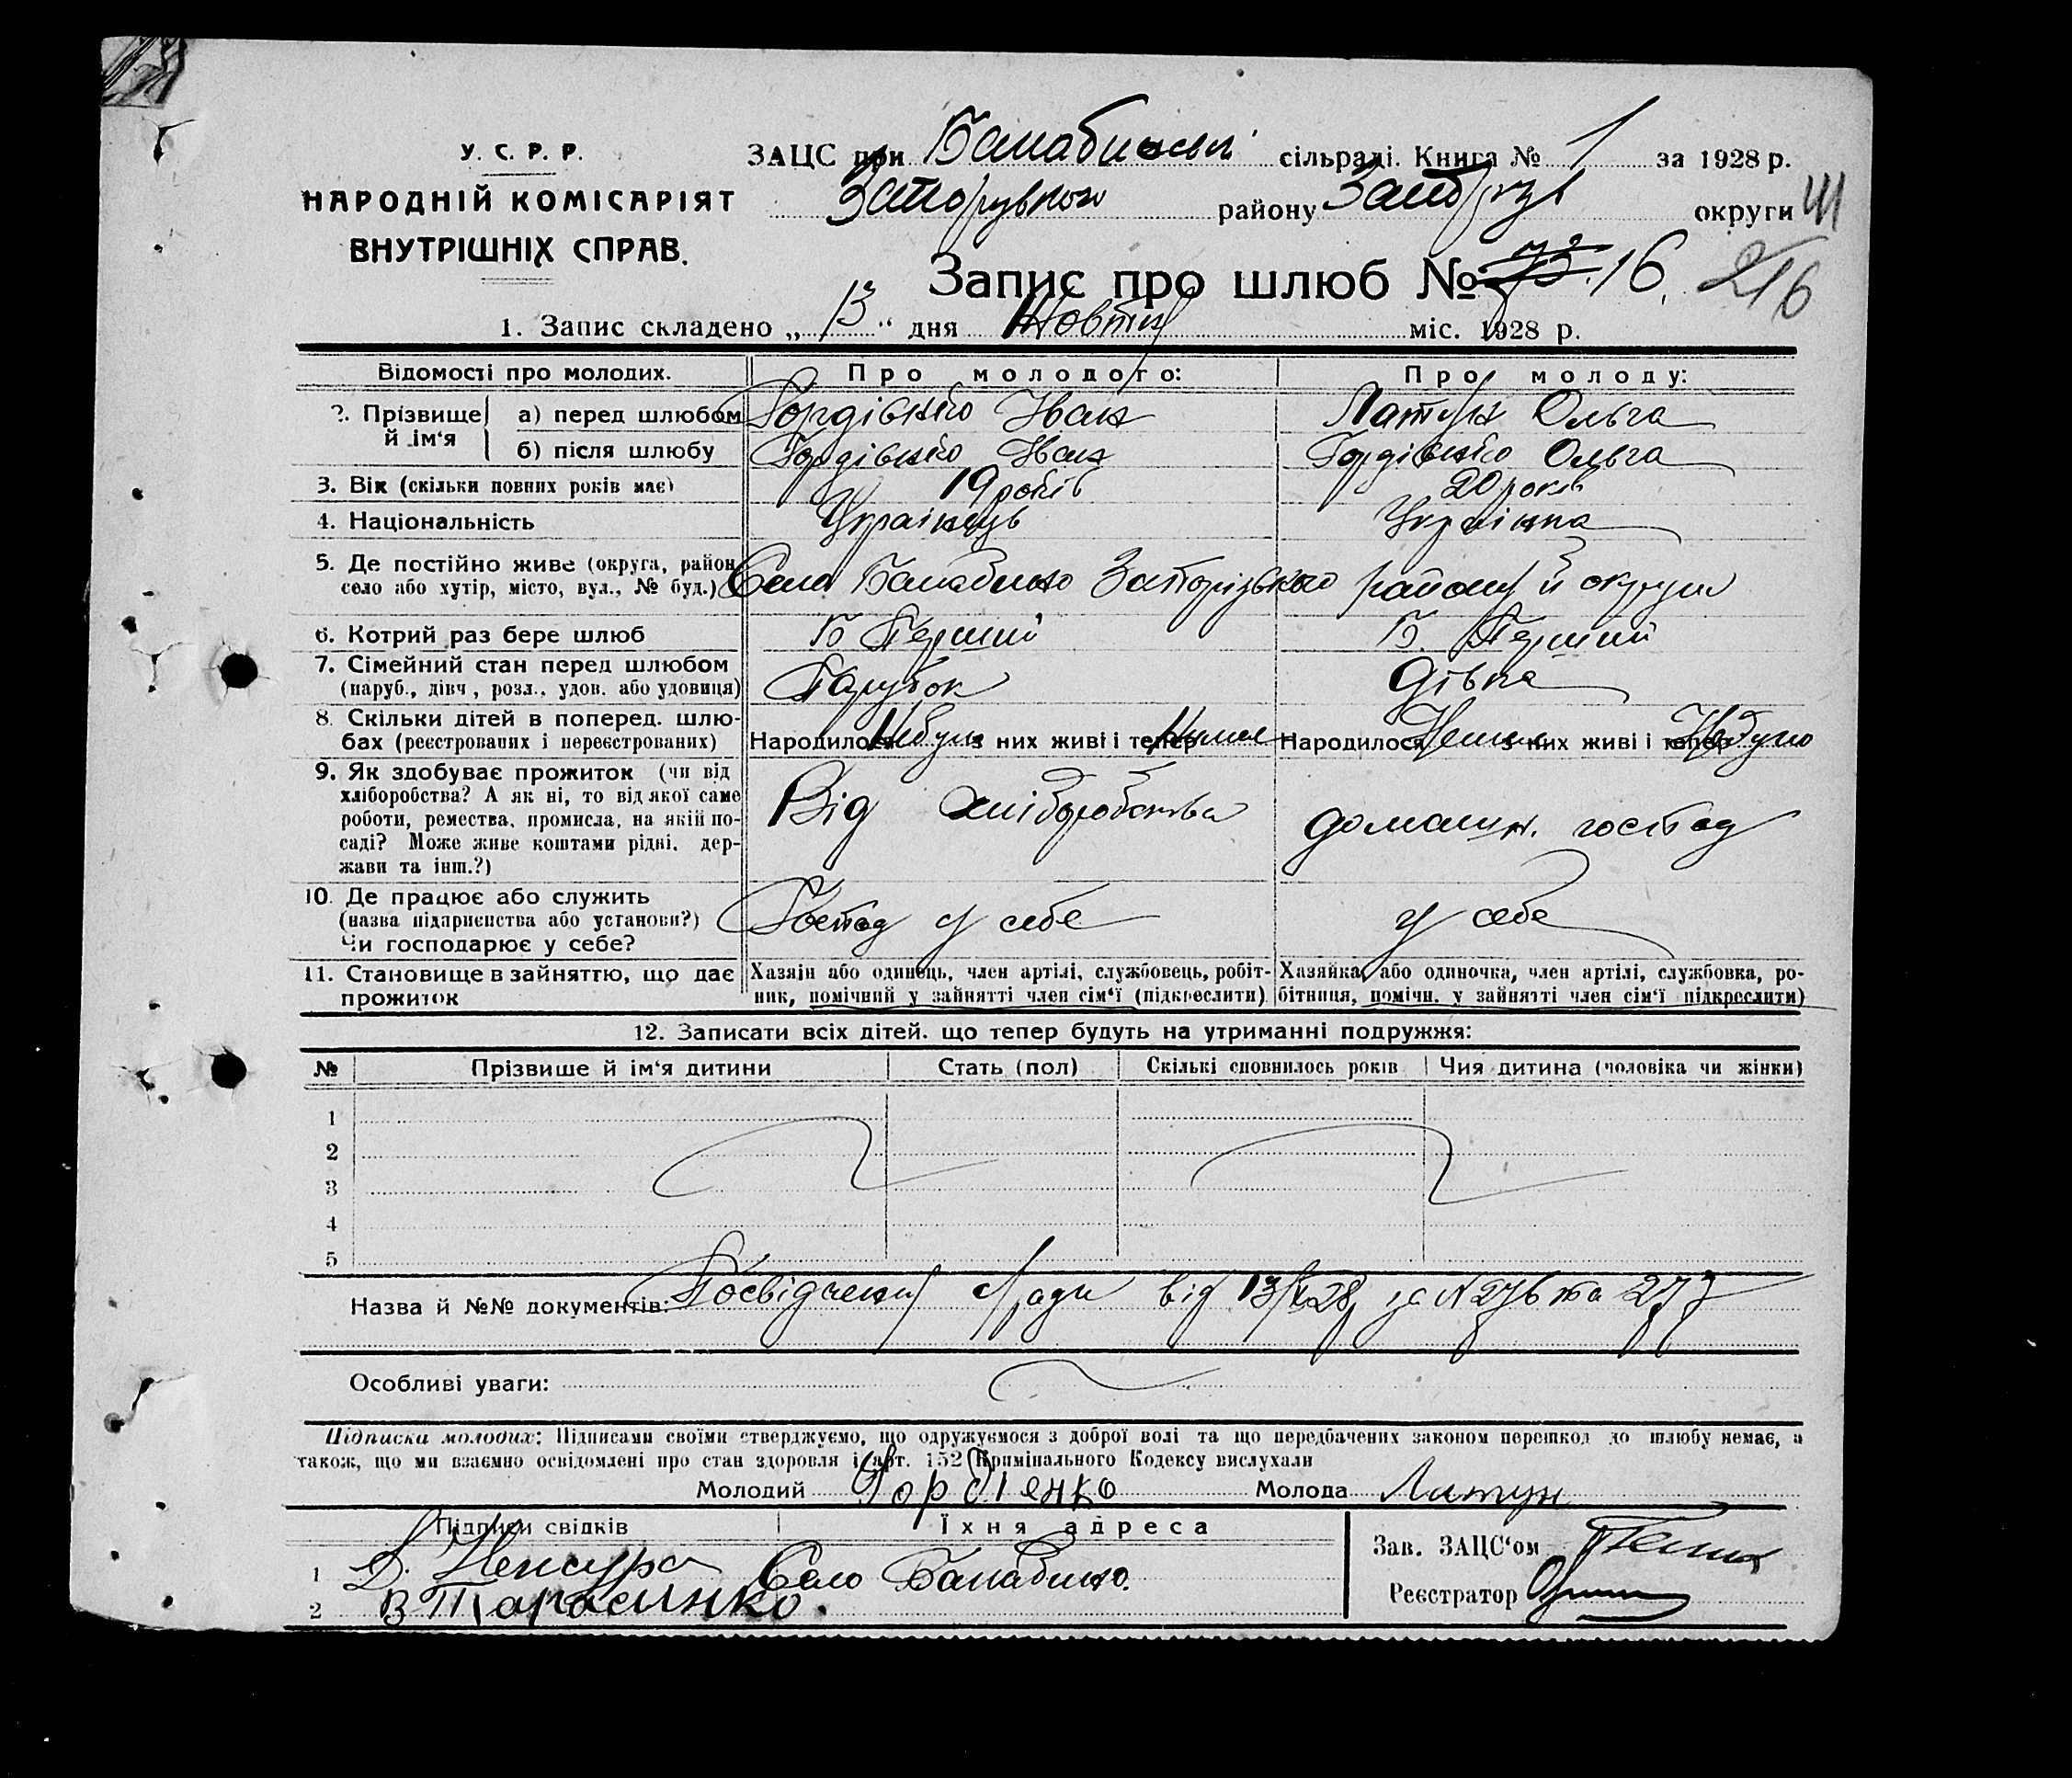 У. С. Р. Р.
НАРОДНІЙ КОМІСАРІЯТ
ВНУТРІШНІХ СПРАВ.
ЗАЦС при Балабинській сільраді. Книга № 1 за 1928 р.
району округи
Запис про шлюб № 16. 216
1. Запис складено „ 13 “ дня Жовтня міс. 1928 р.
Відомості про молодих. Про молодого: Про молоду:
2. Прізвище й ім‘я а) перед шлюбом Гордієнко Іван Латун Ольга
б) після шлюбу Гордієнко Іван Гордієнко Ольга
3. Вік (скільки повних років має) 19 років 20 років
4. Національність Українець Українка
5. Де постійно живе (округа, район,
село або хутір, місто, вул., № буд.) Село Балабино Запорізького району й округи
6. Котрий раз бере шлюб Перший Перший
7. Сімейний стан перед шлюбом
(паруб., дівч., розл., удов. або удовиця) Парубок Дівка
8. Скільки дітей в поперед. шлю-
бах (реєстрованих і нереєстрованих) Народилося з них живі і тепер Народилося з них живі і тепер
9. Як здобуває прожиток (чи від
хліборобства? А як ні, то від якої саме
роботи, ремества, промисла, на якій по-
саді? Може живе коштами рідні, дер-
жави та інш.?) Від хліборобства домашн. господ
10. Де працює або служить
(назва підприємства або установи?)
Чи господарює у себе? Господ у себе у себе
11. Становище в зайняттю, що дає
прожиток
Хазяїн або одинець, член артілі, службовець, робіт-
ник, помічний у зайнятті член сім‘ї (підкреслити)
Хазяйка, або одиночка, член артілі, службовка, ро-
бітниця, помічн. у зайнятті член сім‘ї підкреслити)
12. Записати всіх дітей, що тепер будуть на утриманні подружжя:
№ Прізвише й ім‘я дитини Стать (пол) Скількі сповнилось років Чия дитина (чоловіка чи жінки)
1
2
3
4
5
Назва й №№ документів: Посвідчення с/ради від 13/X 28 р за № 276 та 277
Особливі уваги:
Підписка молодих: Підписами своїми стверджуємо, що одружуємося з доброї волі та що передбачених законом перешкод до шлюбу немає, а
також, що ми взаємно освідомлені про стан здоровля і арт. 152 Кримінального Кодексу вислухали
Молодий Гордіенко Молода Латун
Підписи свідків Їхня адреса
Зав. ЗАЦС‘ом
1 Д. Село Балабино.
Реєстратор
2 В Тарасинко.